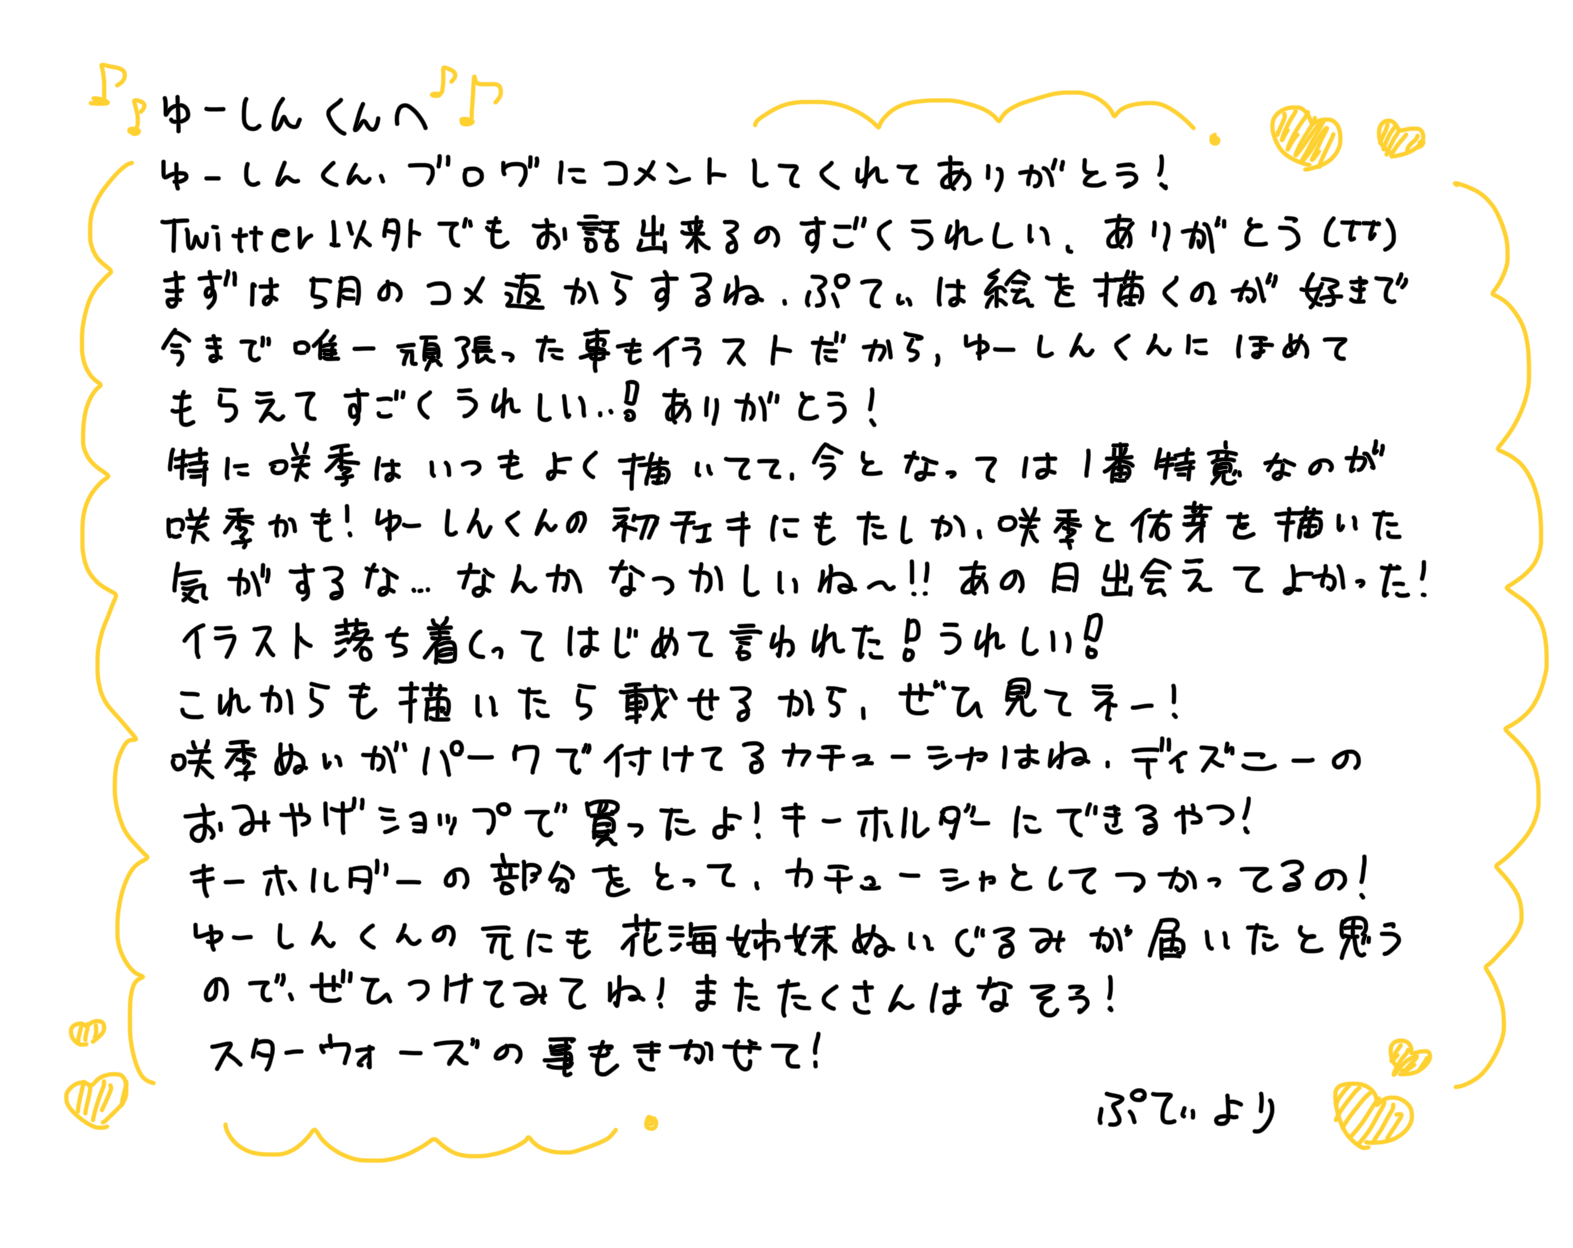 ゆーしんくんへ
ゆーしんくん、ブログにコメントしてくれてありがとう!
Twitter以外でもお話出来るのすごくうれしい、ありがとう(TT)
まずは5月のコメ返からするね、ぷてぃは絵を描くのが好きで
今まで唯一頑張った事もイラストだから、ゆーしんくんにほめて
もらえてすごくうれしい..!ありがとう!
特に咲季はいつもよく描いてて、今となっては1番特意なのが
咲季かも!ゆーしんくんの初チェキにもたしか、咲季と佑芽を描いた
気がするな...なんかなつかしいね〜!!あの日出会えてよかった!
イラスト落ち着くってはじめて言われた!うれしい!
これからも描いたら載せるから、ぜひ見てネー!
咲季ぬいがパークで付けてるカチューシャはね、ディズニーの
おみやげショップで買ったよ!キーホルダーにできるやつ!
キーホルダーの部分をとって、カチューシャとしてつかってるの!
ゆーしんくんの元にも花海姉妹ぬいぐるみが届いたと思う
ので、ぜひつけてみてね!またたくさんはなそう!
スターウォーズの事もきかせて!
ぷてぃより